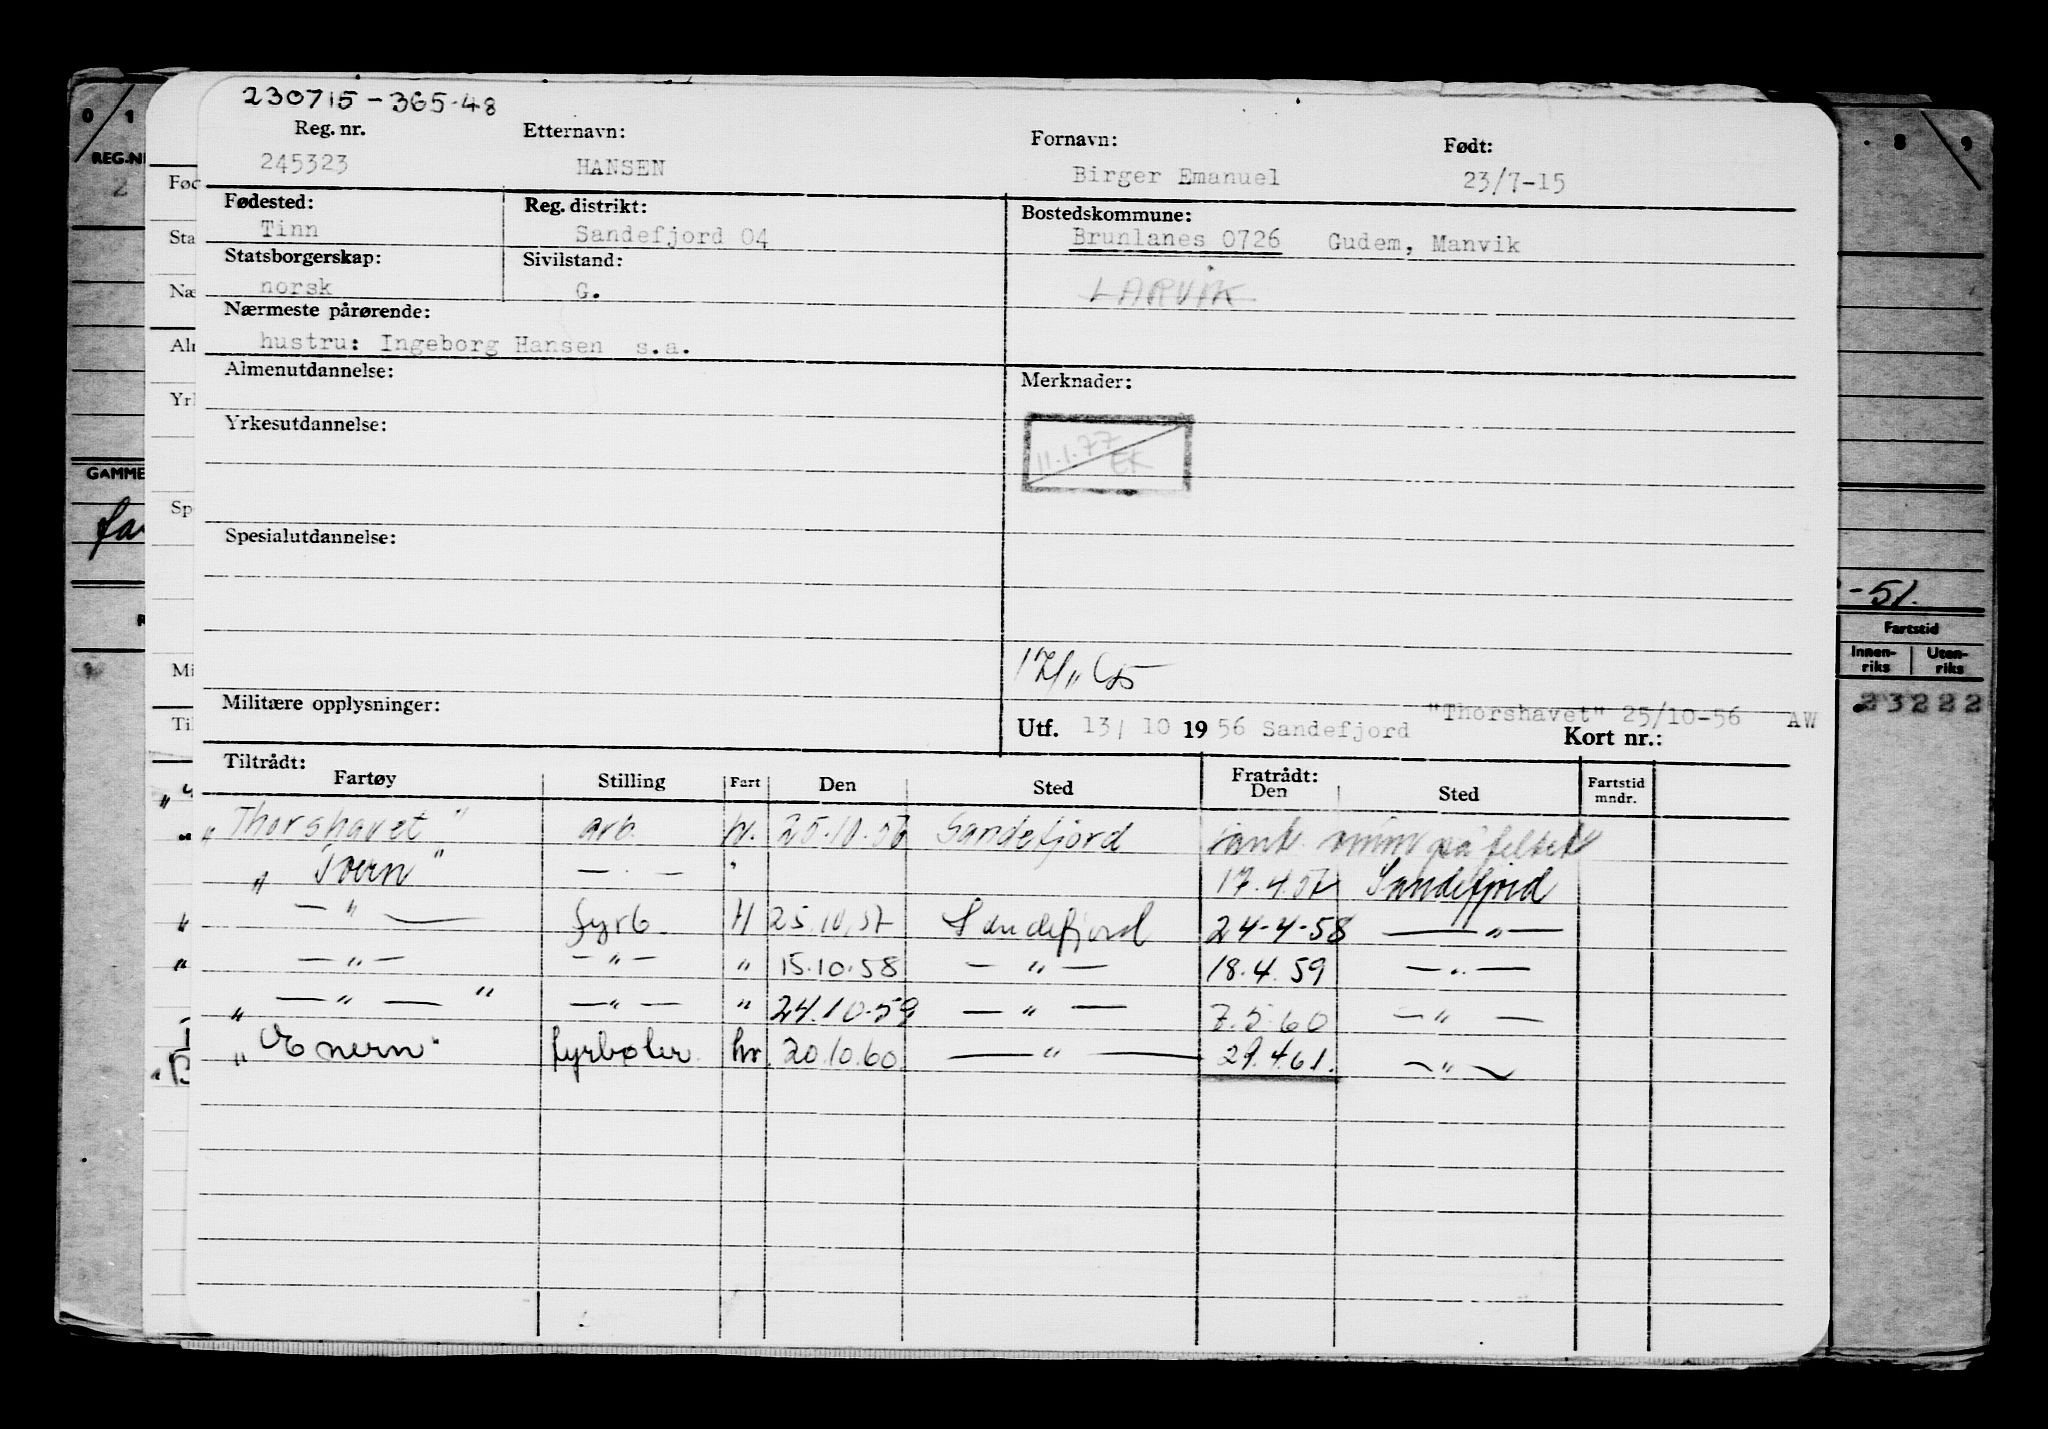 230715-365-48
Reg. nr. Etternavn: Fornavn: Født:
245323 HANSEN Birger Emanuel 23/7-15
Fødested: Reg. distrikt: Bostedskommune:
Tinn Sandefjord 04 Brunlanes 0726 Gudem, Manvik
Statsborgerskap: Sivilstand:
norsk G. LARVIK
Nærmeste pårørende:
hustru: Ingeborg Hansen s.a.
Almenutdannelse: Merknader:
Yrkesutdannelse:
11.1.77
EK
Spesialutdannelse:
Militære opplysninger:
"Thorshavet" 25/10-56 AW
Utf. 13/ 10 1956 Sandefjord Kort nr.:
Tiltrådt: Fratrådt:
Fartøy Stilling Fart Den Sted Den Sted Fartstid mndr.
"Thorshavet" arb. h. 25.10.56 Sandefjord på feltet
" — . — " 17.4.57 Sandefjord
" — " — fyrb. H 25.10.57 Sandefjord 24-4-58 — " —
" — " — — " — " 15.10.58 — " — 18.4.59 — " —
" — " — " — " — " 24.10.59 — " — 7.5.60 — " —
" " fyrbøter hv. 20.10.60 — " — 29.4.61. — " —
0 1
REG.N
2
Fød
Sta
Næ
Aln
Yrk
GAMME
Sp
Mi
Til
8 9
-51.
Fartstid
Innen-riks Uten-riks
23222